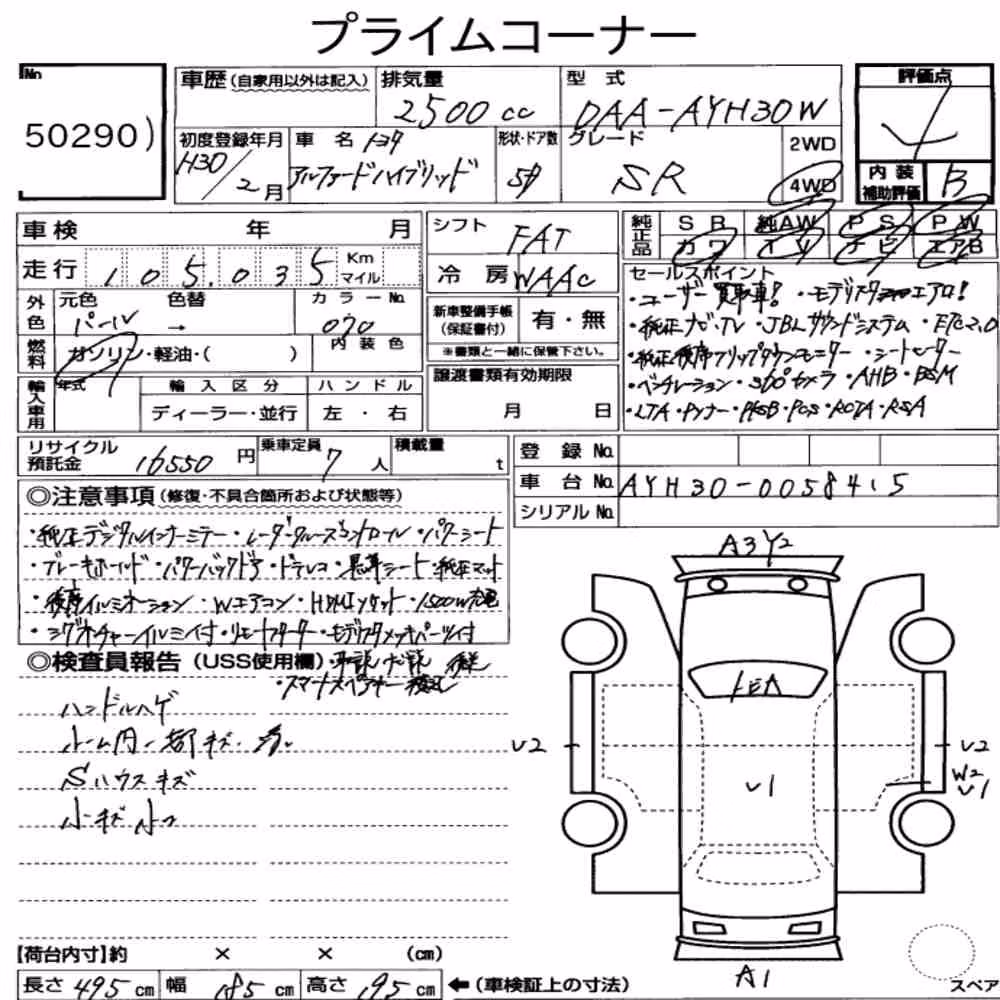 プライムコーナー
No
50290)
車歴 (自家用以外は記入)
排気量
2500 cc
型 式
DAA-AYH30W
評価点
4
初度登録年月
H30/2月
車 名 トヨタ
アルファードハイブリッド
形状・ドア数
5D
グレード
SR
2WD
4WD
内 装
補助評価
B
車検 年 月
シフト
FAT
純正品
S R 純AW P S P W
カワ ナビ エアB
走行 105,035 Km
マイル
冷 房 WAAC
セールスポイント
・ユーザー買取車! ・モデリスタエアロ!
・純正ナビ・TV ・JBLサウンドシステム ・ETC2.0
・純正後席フリップダウンモニター ・シートヒーター
・ベンチレーション ・360°カメラ ・AHB ・BSM
・LTA ・クリソナー ・PKSB ・PCS ・RCTA ・RSA
外色
元色 色替
パール →
カラーNo.
070
新車整備手帳
(保証書付)
有・無
※書類と一緒に保管下さい。
燃料
ガソリン・軽油・( )
内 装 色
譲渡書類有効期限
月 日
輸入車用
年式
輸 入 区 分
ディーラー・並行
ハ ン ド ル
左 ・ 右
リサイクル
預託金
16550 円
乗車定員
7 人
積載量
t
登 録 No.
車 台 No. AYH30-0058415
シリアル No.
◎注意事項 (修復・不具合箇所および状態等)
・純正デジタルインナーミラー ・レーダークルーズコントロール ・パワーシート
・ブレーキホールド ・パワーバックドア ・ドラレコ ・黒革シート ・純正マット
・後席イルミネーション ・Wエアコン ・HDMIソケット ・1500W充電
・シグネチャーイルミ付 ・リモートスターター ・モデリスタメッキパーツ付
◎検査員報告 (USS使用欄)
・取説 ナビ説 後送
・スマートスペアキー後送
ハンドルハゲ
ルーム内一部キズ・汚レ
Sハウスキズ
小キズ 小凹
A3Y2
トビA
U2
U1
U2
W2
U1
A1
【荷台内寸】約 × × (cm)
長さ 495 cm 幅 185 cm 高さ 195 cm
←(車検証上の寸法)
スペア